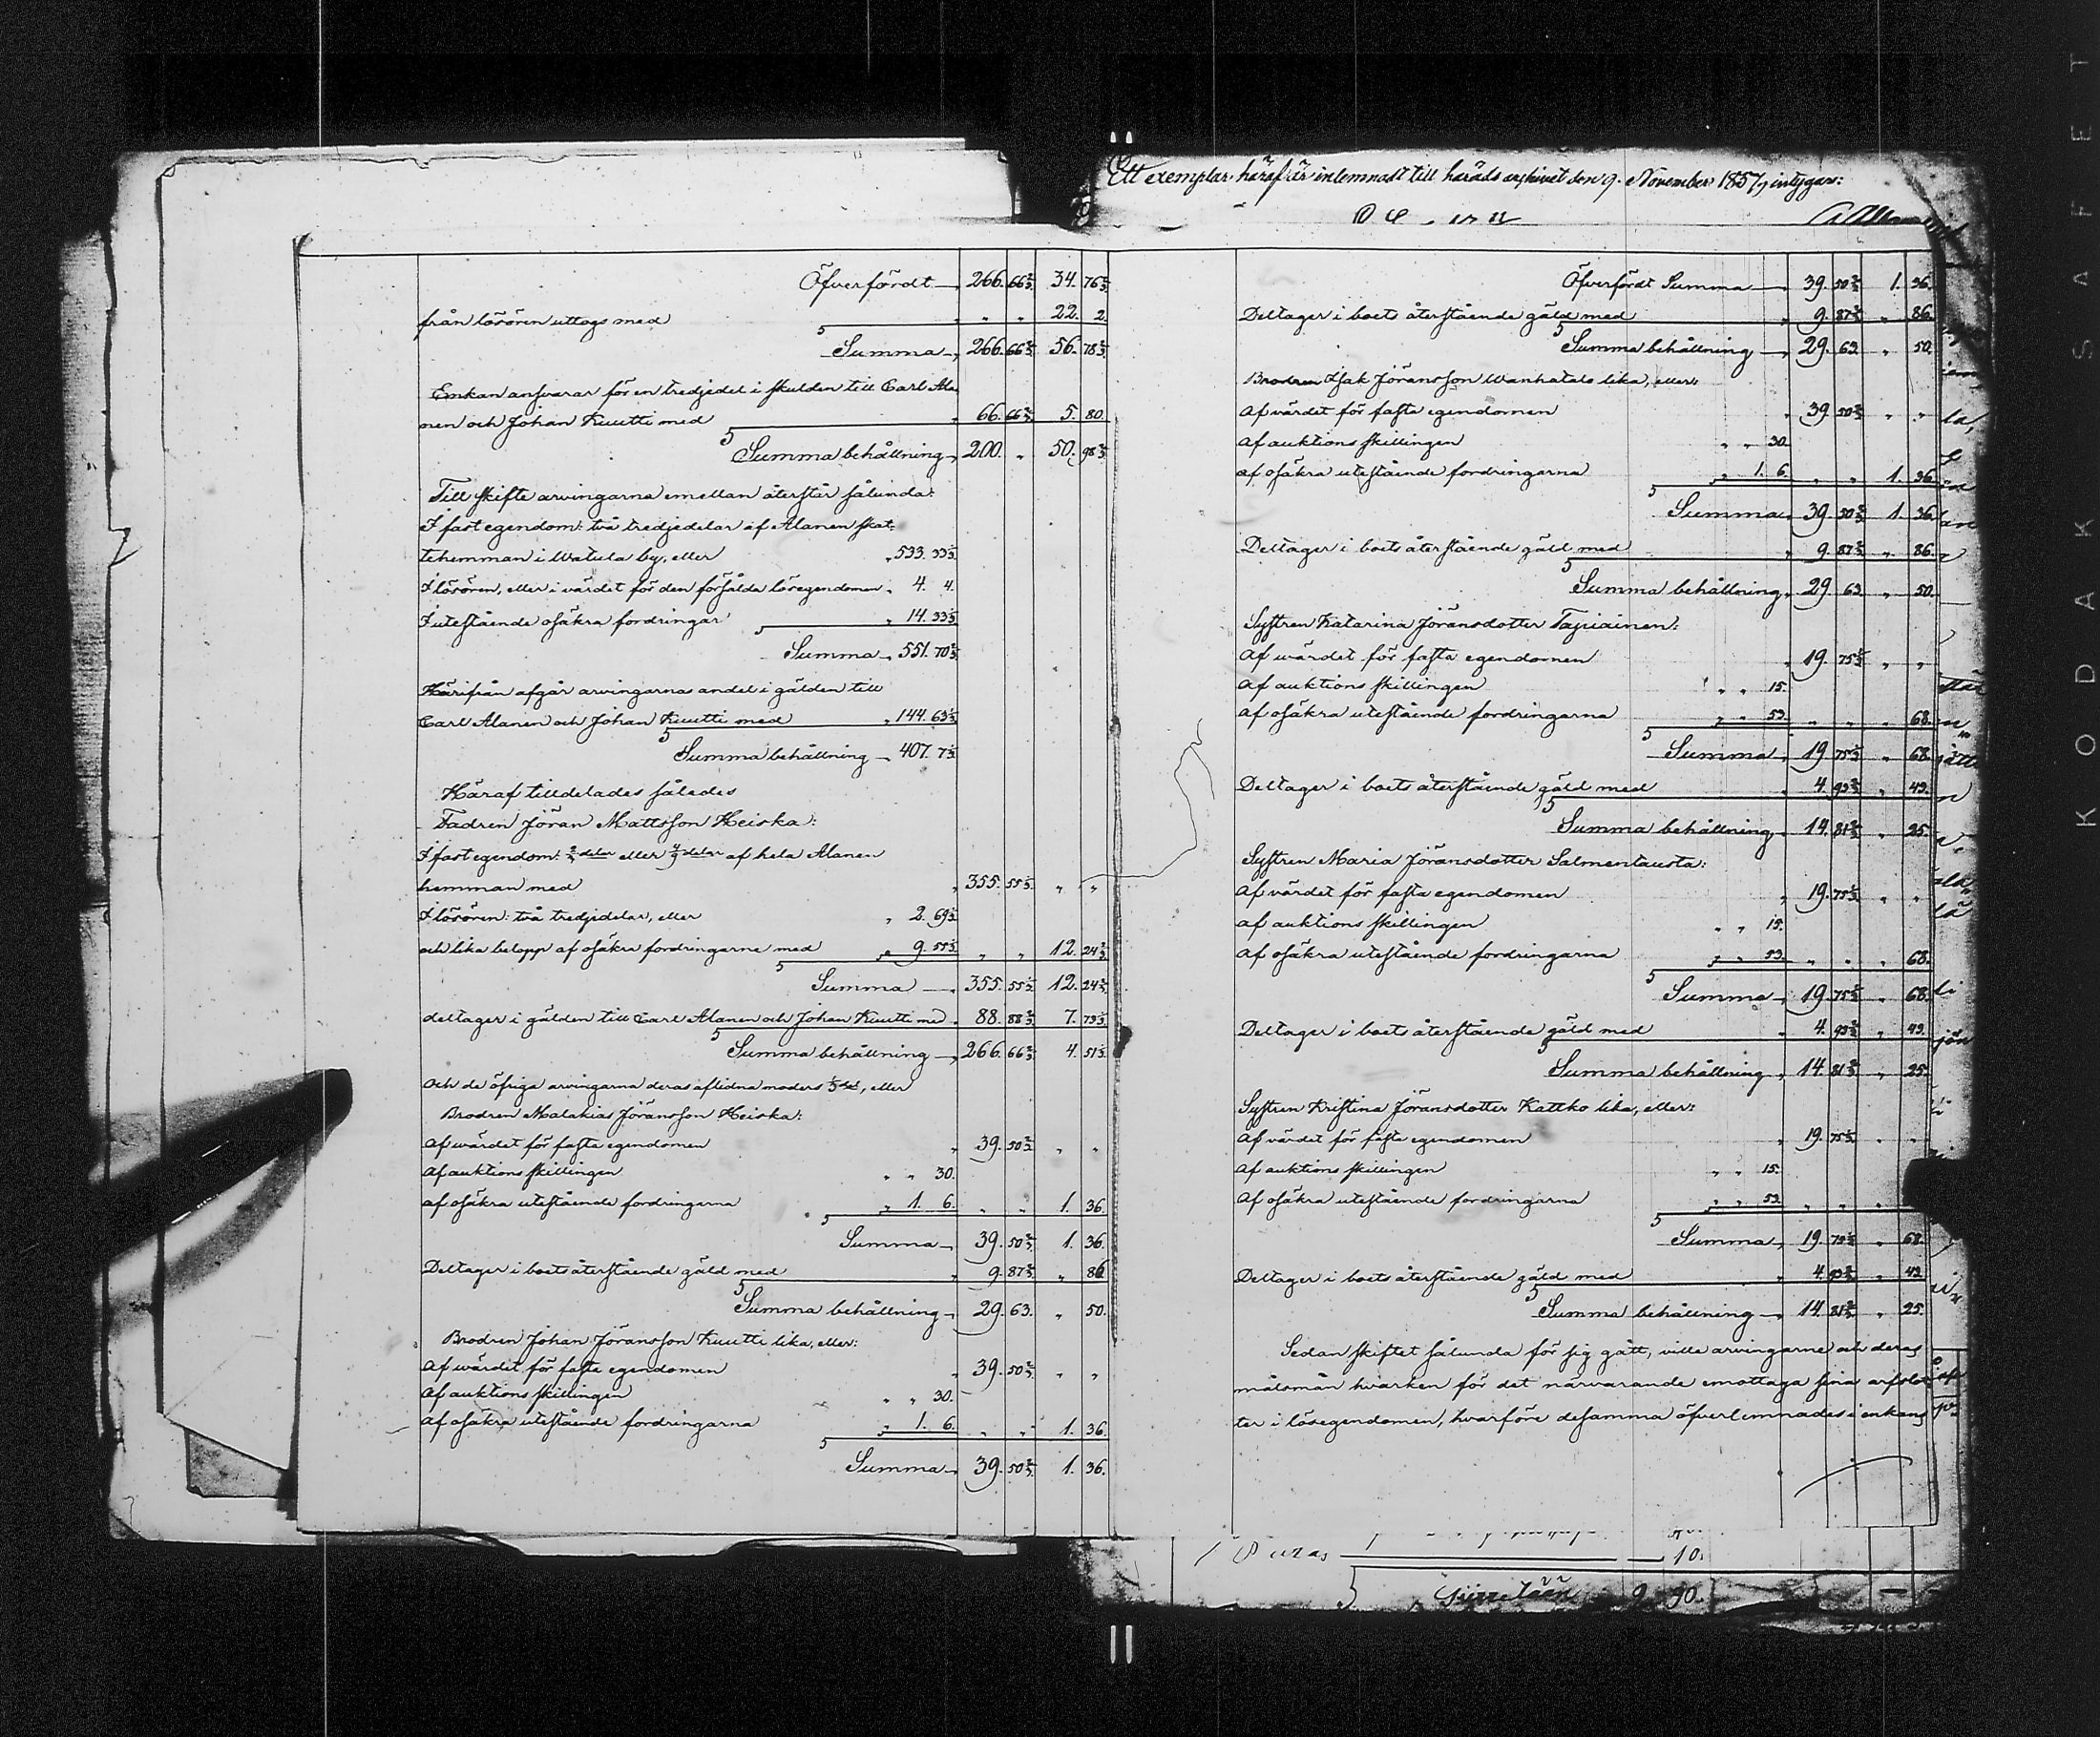 Öfverfördt — 266. 66⅔. 34. 76⅔.
från lösören uttogs med " " 22. 2.
Summa — 266. 66⅔. 56. 78⅔.
Enkan ansvarar för en tredjedel i skulden till Carl Ala-
nen och Johan Kuutti med " 66. 66⅔. 5. 80.
Summa behållning — 200. " 50. 98⅔.
Till skifte arvingarna emellan återstår sålunda:
I fast egendom: två tredjedelar af Alanen skat-
tehemman i Watula by, eller " 533. 33⅓.
I lösören, eller i värdet för den försålda lösegendomen " 4. 4.
I utestående osäkra fordringar " 14. 33⅓.
Summa — 551. 70⅔.
Härifrån afgår arvingarnas andel i gälden till
Carl Alanen och Johan Kuutti med " 144. 63⅓.
Summa behållning — 407. 7⅓.
Häraf tilldelades således
Fadren Jöran Mattsson Heiska:
I fast egendom: ⅔ delar eller 4/9 delar af hela Alanen
hemman med " 355. 55⅓. " "
I lösören: två tredjedelar, eller " 2. 69⅓.
och lika belopp af osäkra fordringarne med " 9. 55⅓. " " 12. 24⅔.
Summa — 355. 55⅓. 12. 24⅔.
deltager i gälden till Carl Alanen och Johan Kuutti med " 88. 88⅔. 7. 73⅓.
Summa behållning — 266. 66⅔. 4. 51⅓.
Och de öfriga arvingarna deras aflidna moders ⅓ del, eller
Brodren Malakias Jöransson Heiska:
Af wärdet för fasta egendomen " 39. 50⅔. " "
Af auktions skillingen " " 30.
af osäkra utestående fordringarna " 1. 6. " " 1. 36.
Summa — 39. 50⅔. 1. 36.
Deltager i boets återstående gäld med " 9. 87⅔. " 86.
Summa behållning — 29. 63. " 50.
Brodren Johan Jöransson Kuutti lika, eller:
Af wärdet för fasta egendomen " 39. 50⅔. " "
Af auktions skillingen " " 30.
Af osäkra utestående fordringarna " 1. 6. " " 1. 36.
Summa — 39. 50⅔. 1. 36.
Ett exemplar häraf är inlemnadt till härads arkivet den 9. November 1857, intygar:
Öfverfördt Summa — 39. 50⅔. 1. 36.
Deltager i boets återstående gäld med " 9. 87⅔. " 86.
Summa behållning — 29. 63. " 50.
Brodren Isak Jöransson Wanhatalo lika, eller:
Af värdet för fasta egendomen " 39. 50⅔. " "
Af auktions skillingen " " 30.
af osäkra utestående fordringarna " 1. 6. " " 1. 36.
Summa — 39. 50⅔. 1. 36.
Deltager i boets återstående gäld med " 9. 87⅔. " 86.
Summa behållning " 29. 63. " 50.
Systren Katarina Jöransdotter Tapiainen:
Af wärdet för fasta egendomen " 19. 75⅓. " "
Af auktions skillingen " " 15.
Af osäkra utestående fordringarna " " 53. " " " 68.
Summa — 19. 75⅓. " 68.
Deltager i boets återstående gäld med " 4. 93⅔. " 43.
Summa behållning " 14. 81⅔. " 25.
Systren Maria Jöransdotter Salmentausta:
Af värdet för fasta egendomen " 19. 75⅓. " "
af auktions skillingen " " 15.
Af osäkra utestående fordringarna " " 53. " " " 68.
Summa — 19. 75⅓. " 68.
Deltager i boets återstående gäld med " 4. 93⅔. " 43.
Summa behållning " 14. 81⅔. " 25.
Systren Kristina Jöransdotter Kattko lika, eller:
Af värdet för fasta egendomen " 19. 75⅓. " "
Af auktions skillingen " " 15.
Af osäkra utestående fordringarna " " 53. " " "
Summa — 19. 75⅓. " 68.
Deltager i boets återstående gäld med " 4. 93⅔. " 43.
Summa behållning — 14. 81⅔. " 25.
Sedan skiftet sålunda för sig gått, ville arvingarne och deras
målsmän hvarken för det närvarande emottaga sina arfslot-
ter i lösegendomen, hvarföre desamma öfverlemnades i enkans
10.
9 90.
KODAK SAFET